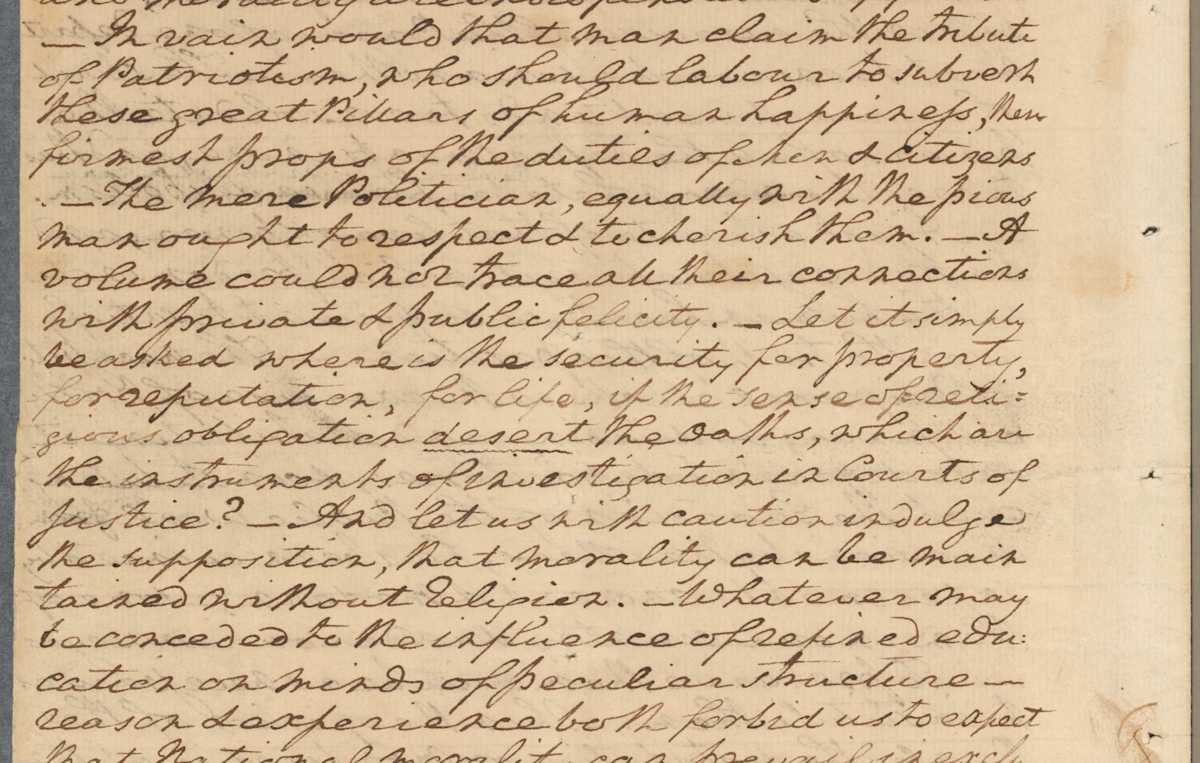 and morality are indispensable
— In vain would that man claim the tribute
of Patriotism, who should labour to subvert
these great Pillars of human happiness, these
firmest props of the duties of Men & citizens
. — The mere Politician, equally with the pious
man ought to respect & to cherish them. — A
volume could not trace all their connections
with private & public felicity. — Let it simply
be asked where is the security for property,
for reputation, for life, if the sense of reli=
gious obligation desert the Oaths, which are
the instruments of investigation in Courts of
Justice? — And let us with caution indulge
the supposition, that morality can be main
tained without religion. — Whatever may
be conceded to the influence of refined edu:
cation on minds of peculiar structure —
reason & experience both forbid us to expect
that National morality can prevail in exclu